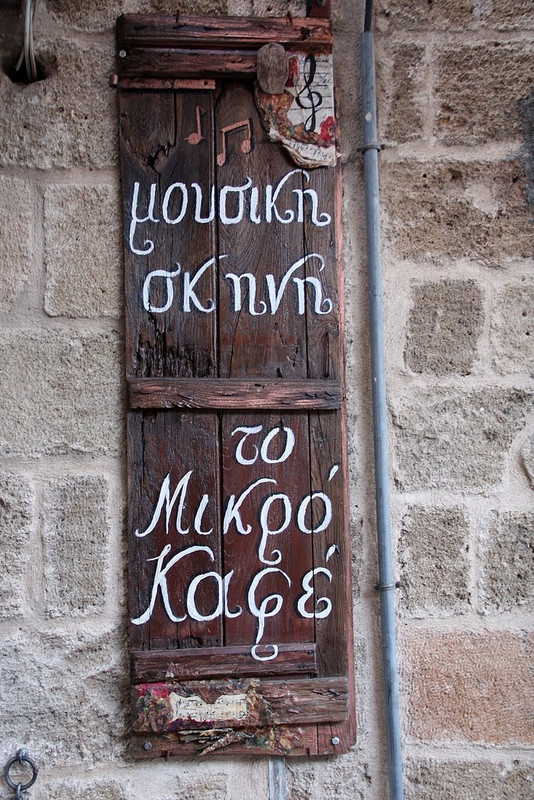 μουσικη
σκηνη
το
Μικρό
Καφέ